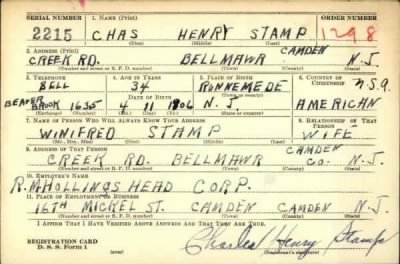 SERIAL NUMBER 1. NAME (Print) ORDER NUMBER
2215 CHAS HENRY STAMP 1298
(First) (Middle) (Last)
2. ADDRESS (Print) CAMDEN
CREEK RD. BELLMAWR N.J.
(Number and street or R. F. D. number) (Town) (County) (State)
3. TELEPHONE 4. AGE IN YEARS 5. PLACE OF BIRTH 6. COUNTRY OF CITIZENSHIP
BELL 34 RUNNEMEDE U.S.A.
DATE OF BIRTH (Town or county)
BEAVER BROOK 1635 4 11 1906 N.J. AMERICAN
(Exchange) (Number) (Mo.) (Day) (Yr.) (State or country)
7. NAME OF PERSON WHO WILL ALWAYS KNOW YOUR ADDRESS 8. RELATIONSHIP OF THAT PERSON
WINIFRED STAMP WIFE
(Mr., Mrs., Miss) (First) (Middle) (Last)
9. ADDRESS OF THAT PERSON CAMDEN
CREEK RD. BELLMAWR CO. N.J.
(Number and street or R. F. D. number) (Town) (County) (State)
10. EMPLOYER'S NAME
R.M HOLLINGSHEAD CORP.
11. PLACE OF EMPLOYMENT OR BUSINESS
16TH MICKEL ST. CAMDEN CAMDEN N.J.
(Number and street or R. F. D. number) (Town) (County) (State)
I AFFIRM THAT I HAVE VERIFIED ABOVE ANSWERS AND THAT THEY ARE TRUE.
REGISTRATION CARD
D. S. S. Form 1
Charles Henry Stamp
(Registrant's signature)